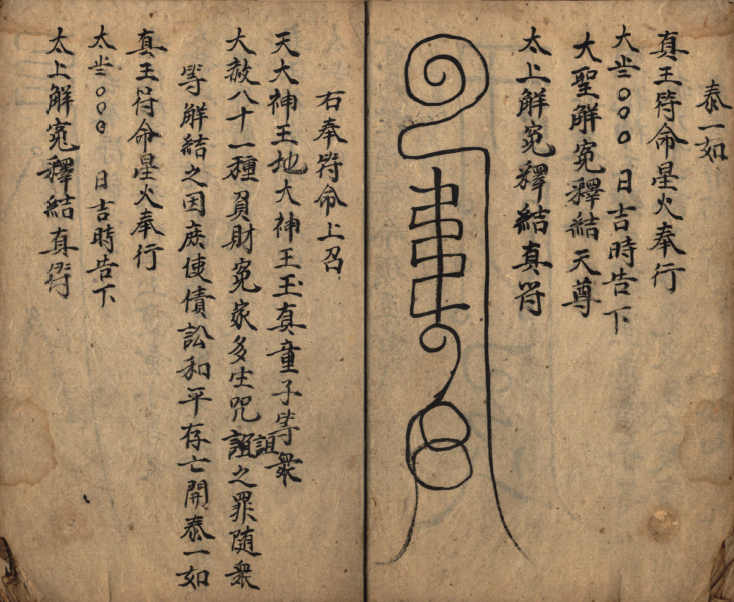 泰一如
真王符命星火奉行
大𡴑○○○日吉時告下
大聖解寃釋結天尊
太上解寃釋結真符
右奉符命上召
天大神王地大神王玉真童子等衆
大赦八十一種負財寃家多生咒詛之罪随衆
等解結之因庶使債訟和平存亡開泰一如
真王符命星火奉行
太𡴑○○○日吉時告下
太上解寃釋結真符